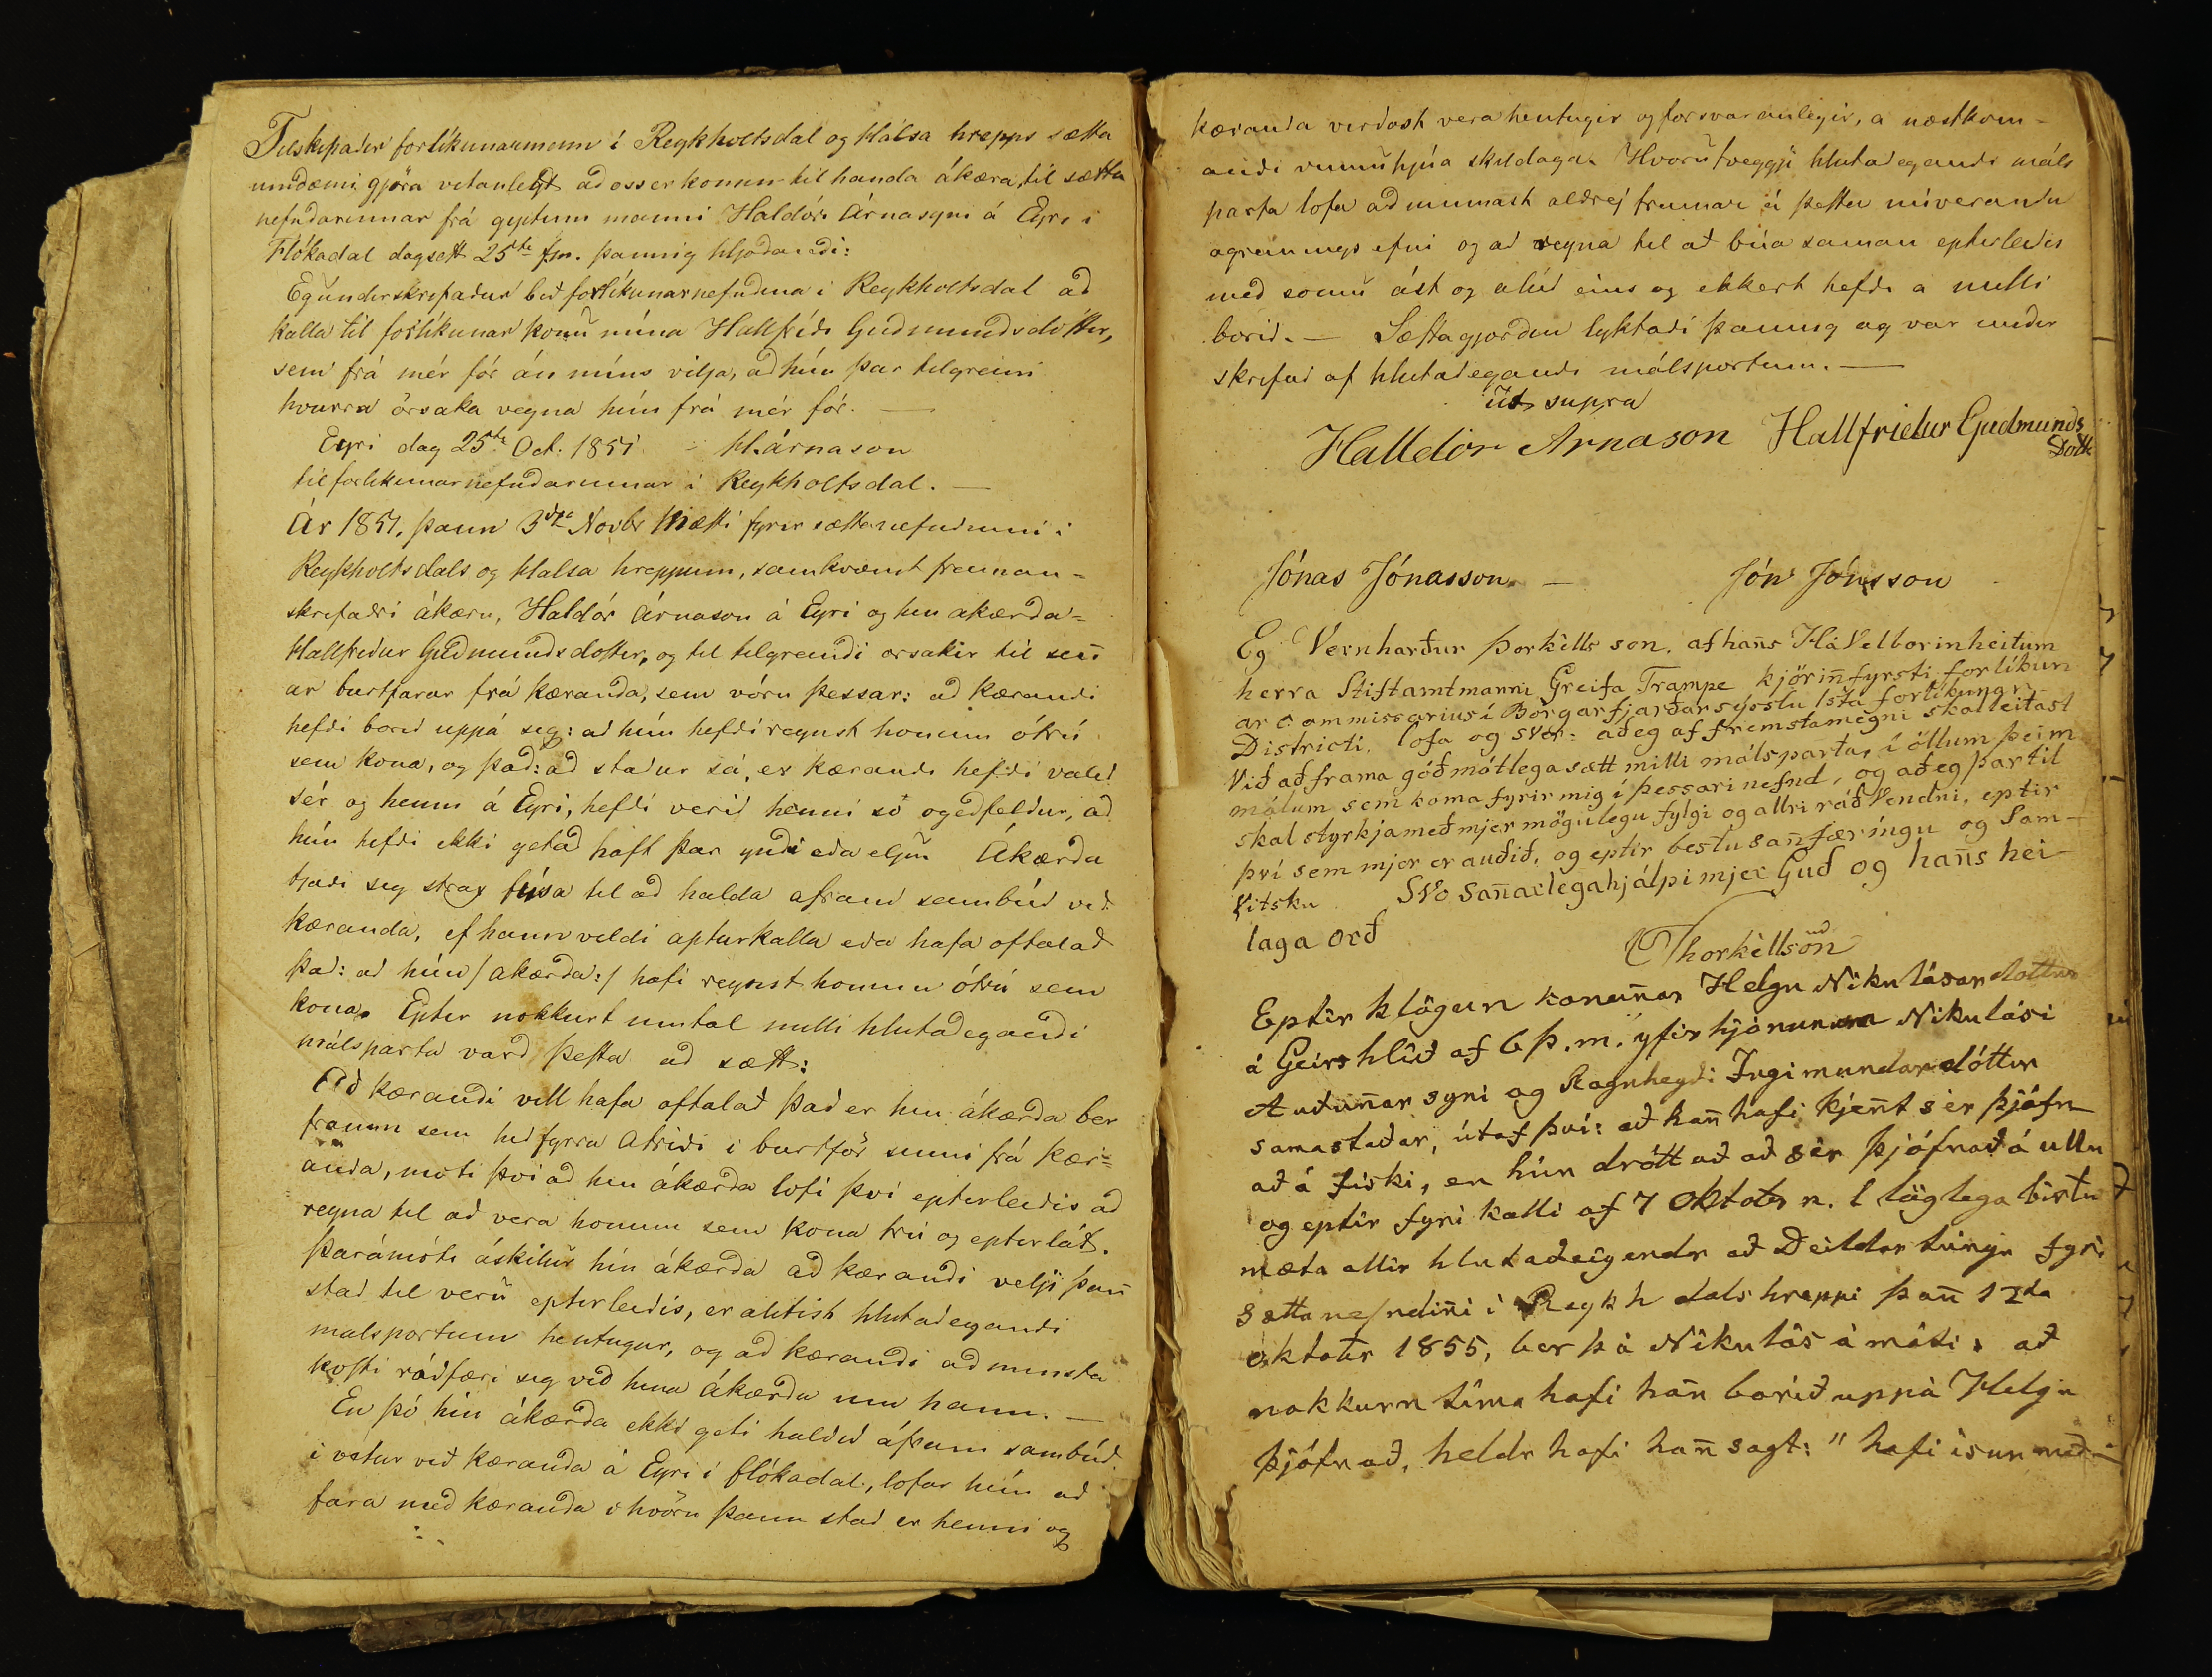 Tilskipaðir forlíkunarmenn í Reykholtsdal og Hálsa hrepps sætta
umdæmi gjöra vitanlegt að oss er komin til handa ákæra, til sætta
nefndarinnar frá giptum manni Haldóri Árnasyni á Eyri í
Flókadal dagsett 25ta f.m. þannig hljóðandi:
Eg undirskrifaður bið forlíkunarnefndina í Reykholtsdal að
kalla til forlíkunar konu mína Hallfríði Guðmundsdóttir,
sem frá mér fór án míns vilja, að hún þar tilgreini
hvurra orsaka vegna hún frá mér fór. —
Eyri dag 25ta Oct. 1851 H. Árnason
til forlikunarnefndarinnar í Reykholtsdal. —
Ár 1851. þann 3ðja Novbr mætti fyrir sættanefndinni í
Reykholtsdals og Halsa hreppum, samkvæmt framan-
skrifaðri ákæru, Haldór Árnason á Eyri og hin akærða=
Hallfríður Guðmundsdottir, og til tilgreindi orsakir til sinn
ar burtfarar frá kæranda, sem vóru þessar: að kærandi
hefði borið uppá sig: að hún hefði reynst honum ótrú
sem kona, og það: að staður sá, er kærandi hefði valið
sér og henni á Eyri, hefði verið henni so ogeðfeldur, að
hún hefði ekki getað haft þar yndi eða eljun Ákærða
tjáði sig strax fúsa til að halda afram sambúð við
kæranda, ef hann vildi apturkalla eða hafa oftalað
það: að hún /:akærða:/ hafi reynst honum ótrú sem
kona. Eptir nokkurt umtal milli hlutaðegandi
málsparta varð þetta að sætt:
Að kærandi vill hafa oftalað það er hin ákærða ber
framm sem hið fyrra Atriði í burtför sinni frá kær=
anda, moti því að hin ákærða lofi því epterleiðis að
reyna til að vera honum sem kona trú og epterlát.
Þarámóti áskilur hin ákærða að kærandi velji þann
stað til veru epterleiðis, er alitist hlutaðegandi
malspörtum hentugur, og að kærandi að minsta
kosti ráðfæri sig við hina ákærðu um hann. —
En þó hin ákærða ekki geti haldið áfram sambúð
í vetur við kæranda á Eyri í Flókadal, lofar hún að
fara með kæranda í hvörn þann stað er henni og
kæranda virðast vera hentugir og forsvaranlegir, a næstkom-
andi vinnuhjúa skildaga. Hvorutveggji hlutaðegandi máls
parta lofa að minnast aldrej framar á þetta núverandi
agreinings efni og að reyna til að búa saman epterleiðis
með sömu ást og alúð eins og ekkert hefði a milli
borið. — Sættagjörðin lyktaði þannig og var under
skrifuð af hlutaðegandi málspörtum. —
út supra
Halldór Arnason Hallfriður Gudmunds
Dótt
Jónas Jónasson. — Jón Jónsson
Eg Vernharður Þorkèlls son. af hans Há Velborinheitum
herra Stiftamtmanni Greifa Trampe kjörinn fyrsti forlíkun
ar commissarius í Borgarfjarðarsysslu 1sta forlíkunar
Districti, lofa og sver: að eg af fremsta megni skal leitast
Við að frama góðmótlega sætt milli málsparta, í öllum þeim
málum sem koma fyrir mig í þessari nefnd, og að eg þar til
skal styrkja með mjer mögulegu fylgi og allri ráðvendni, eptir
því sem mjer er auðið, og eptir bestu sannfæríngu og Sam-
Vitsku SVo sannarlega hjálpi mjer Guð og hans hei
laga orð
Thorkèllsön
Eptir klögun konunnar Helgu Nikulásardottur
á Geirshlíð af 6 þ.m. yfir hjónunum Nikulási
Auðunnarsyni og Ragnheyði Ingimundardóttur
samastaðar, útaf því: að hann hafi kjent sèr þjófn
að á fiski, en hún drótt að að sèr þjófnað á ullu
og eptir fyrikalli af 7 Oktobr n. l löglega birtu
mæta allir hlutaðeigendr að Deildartúngu fyri
sættanefndinni í Reykhdalshreppi þann 12ta
októbr 1855, ber þá Nikulás á móti, að
nokkurn tíma hafi hann borið uppá Helgu
þjófnað, heldr hafi hann sagt: "hafi ísun með-